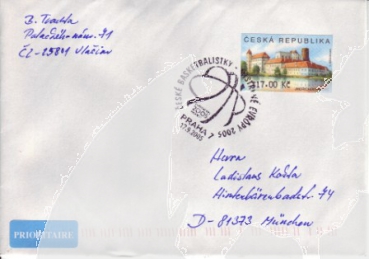 B. Trachta
Palackého nám. 71
CZ-25841 Vlašim
ČESKÁ REPUBLIKA
17.00 Kč
ČESKÉ BASKETBALISTKY - EVROPY 2005
PRAHA 7
Herrn
Ladislaus Košta
Hinterbärenbadstr. 74
D-81373 München
PRIORITAIRE